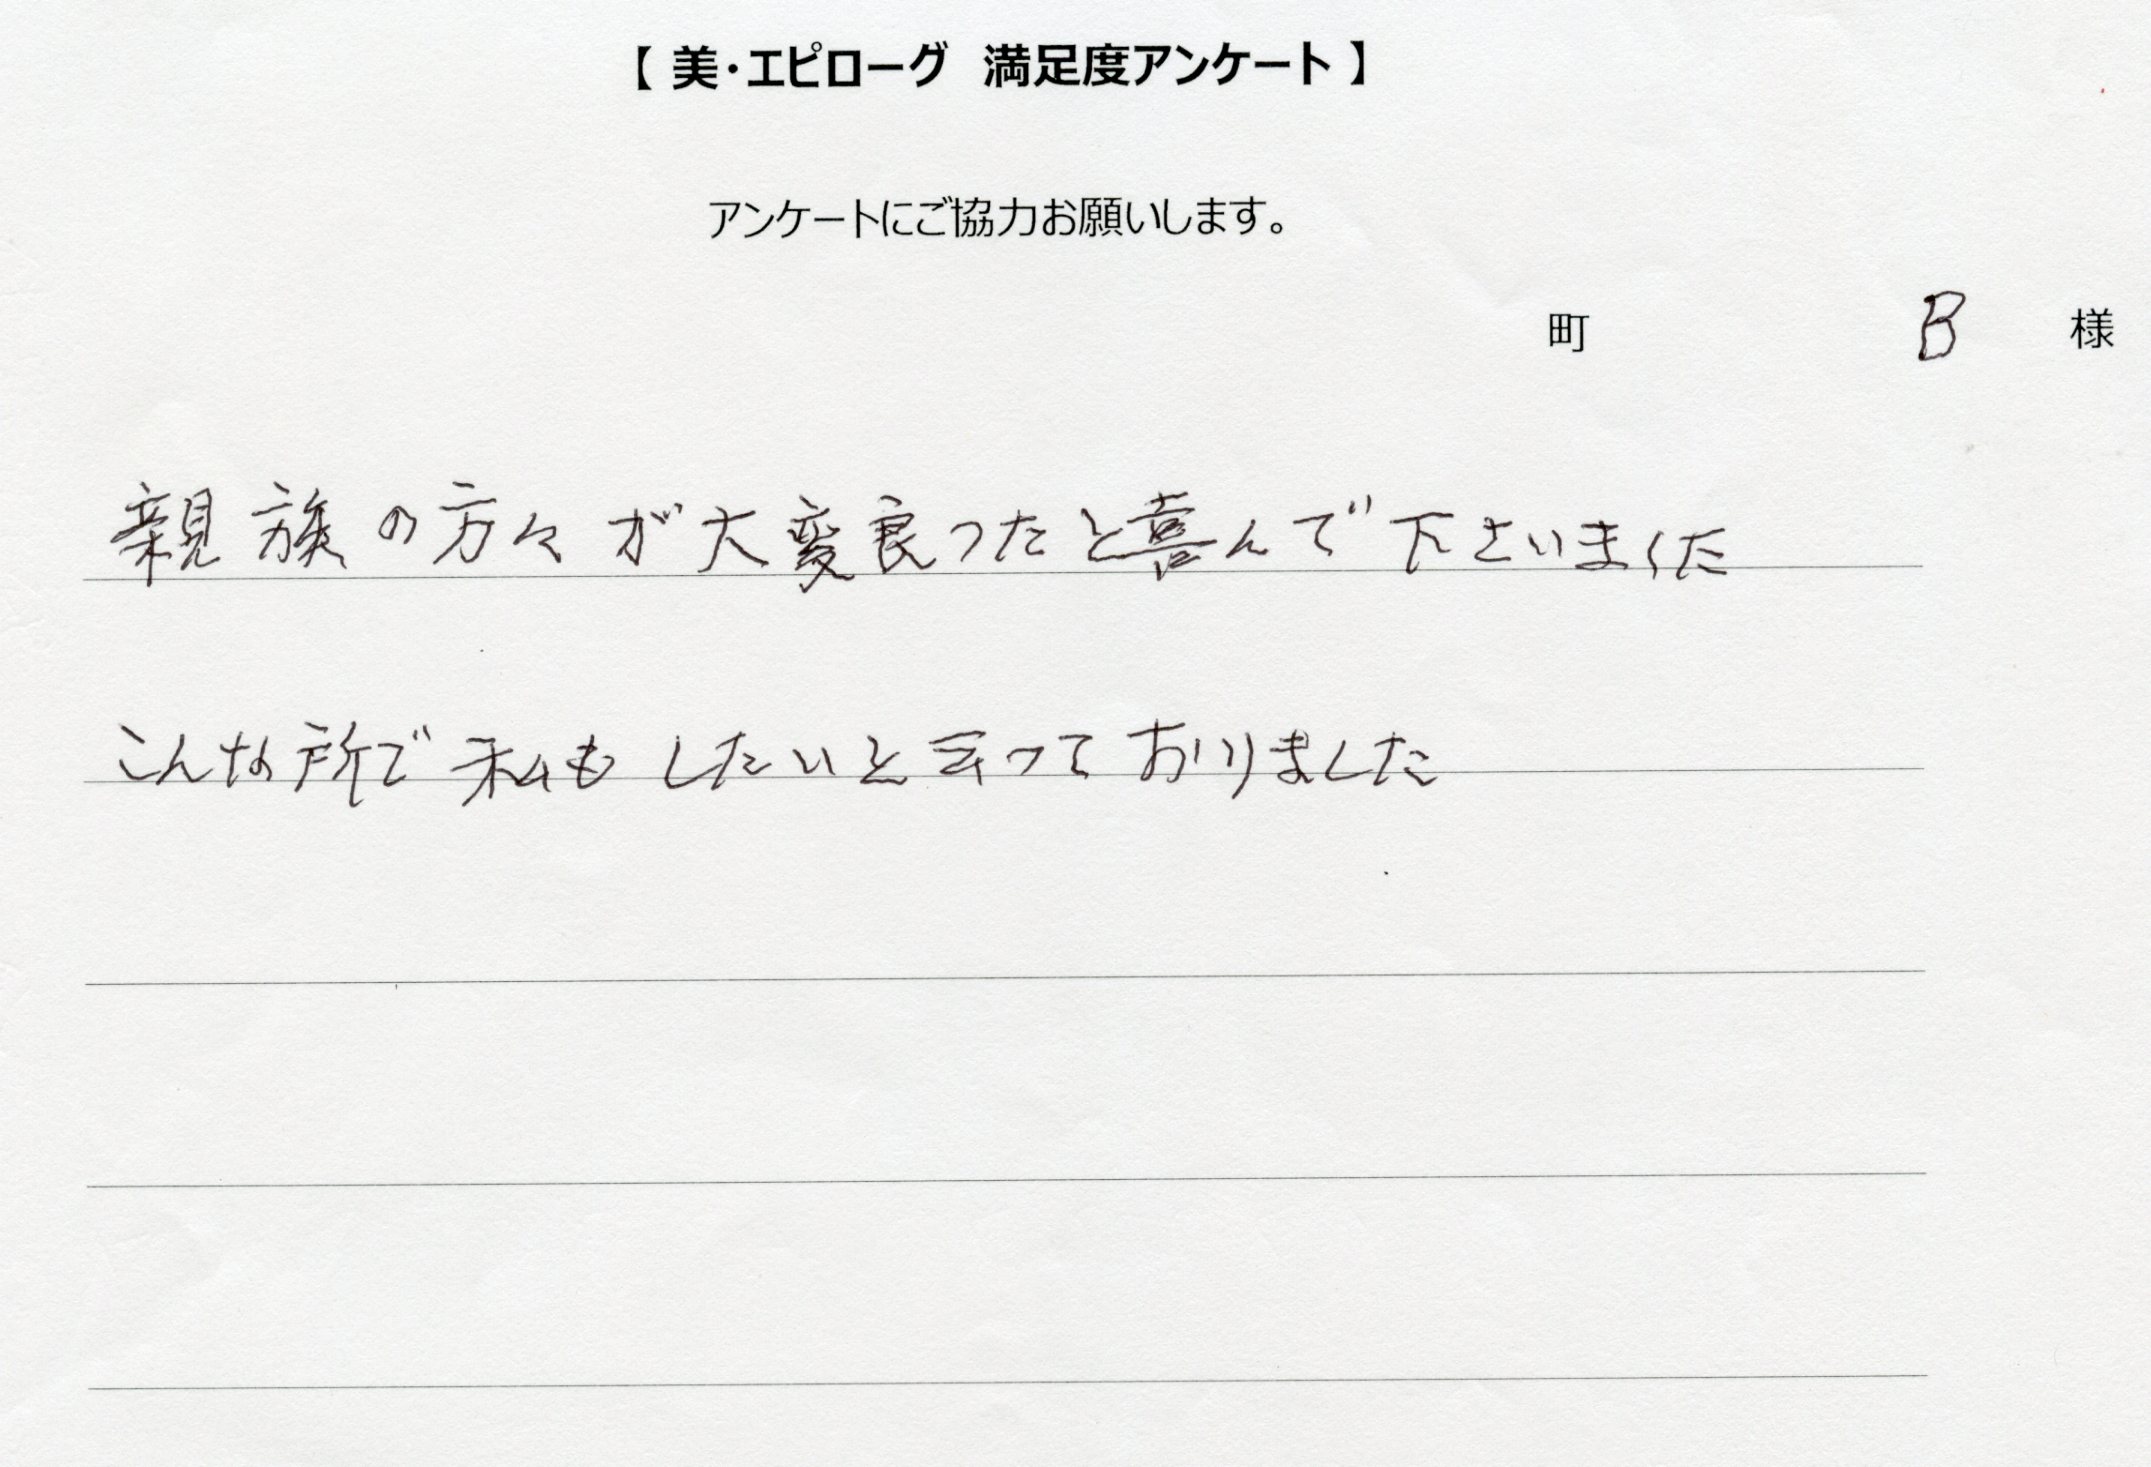 【 美・エピローグ 満足度アンケート 】
アンケートにご協力お願いします。
町 B 様
親族の方々が大変良ったと喜んで下さいました
こんな所で私もしたいと云っておりました